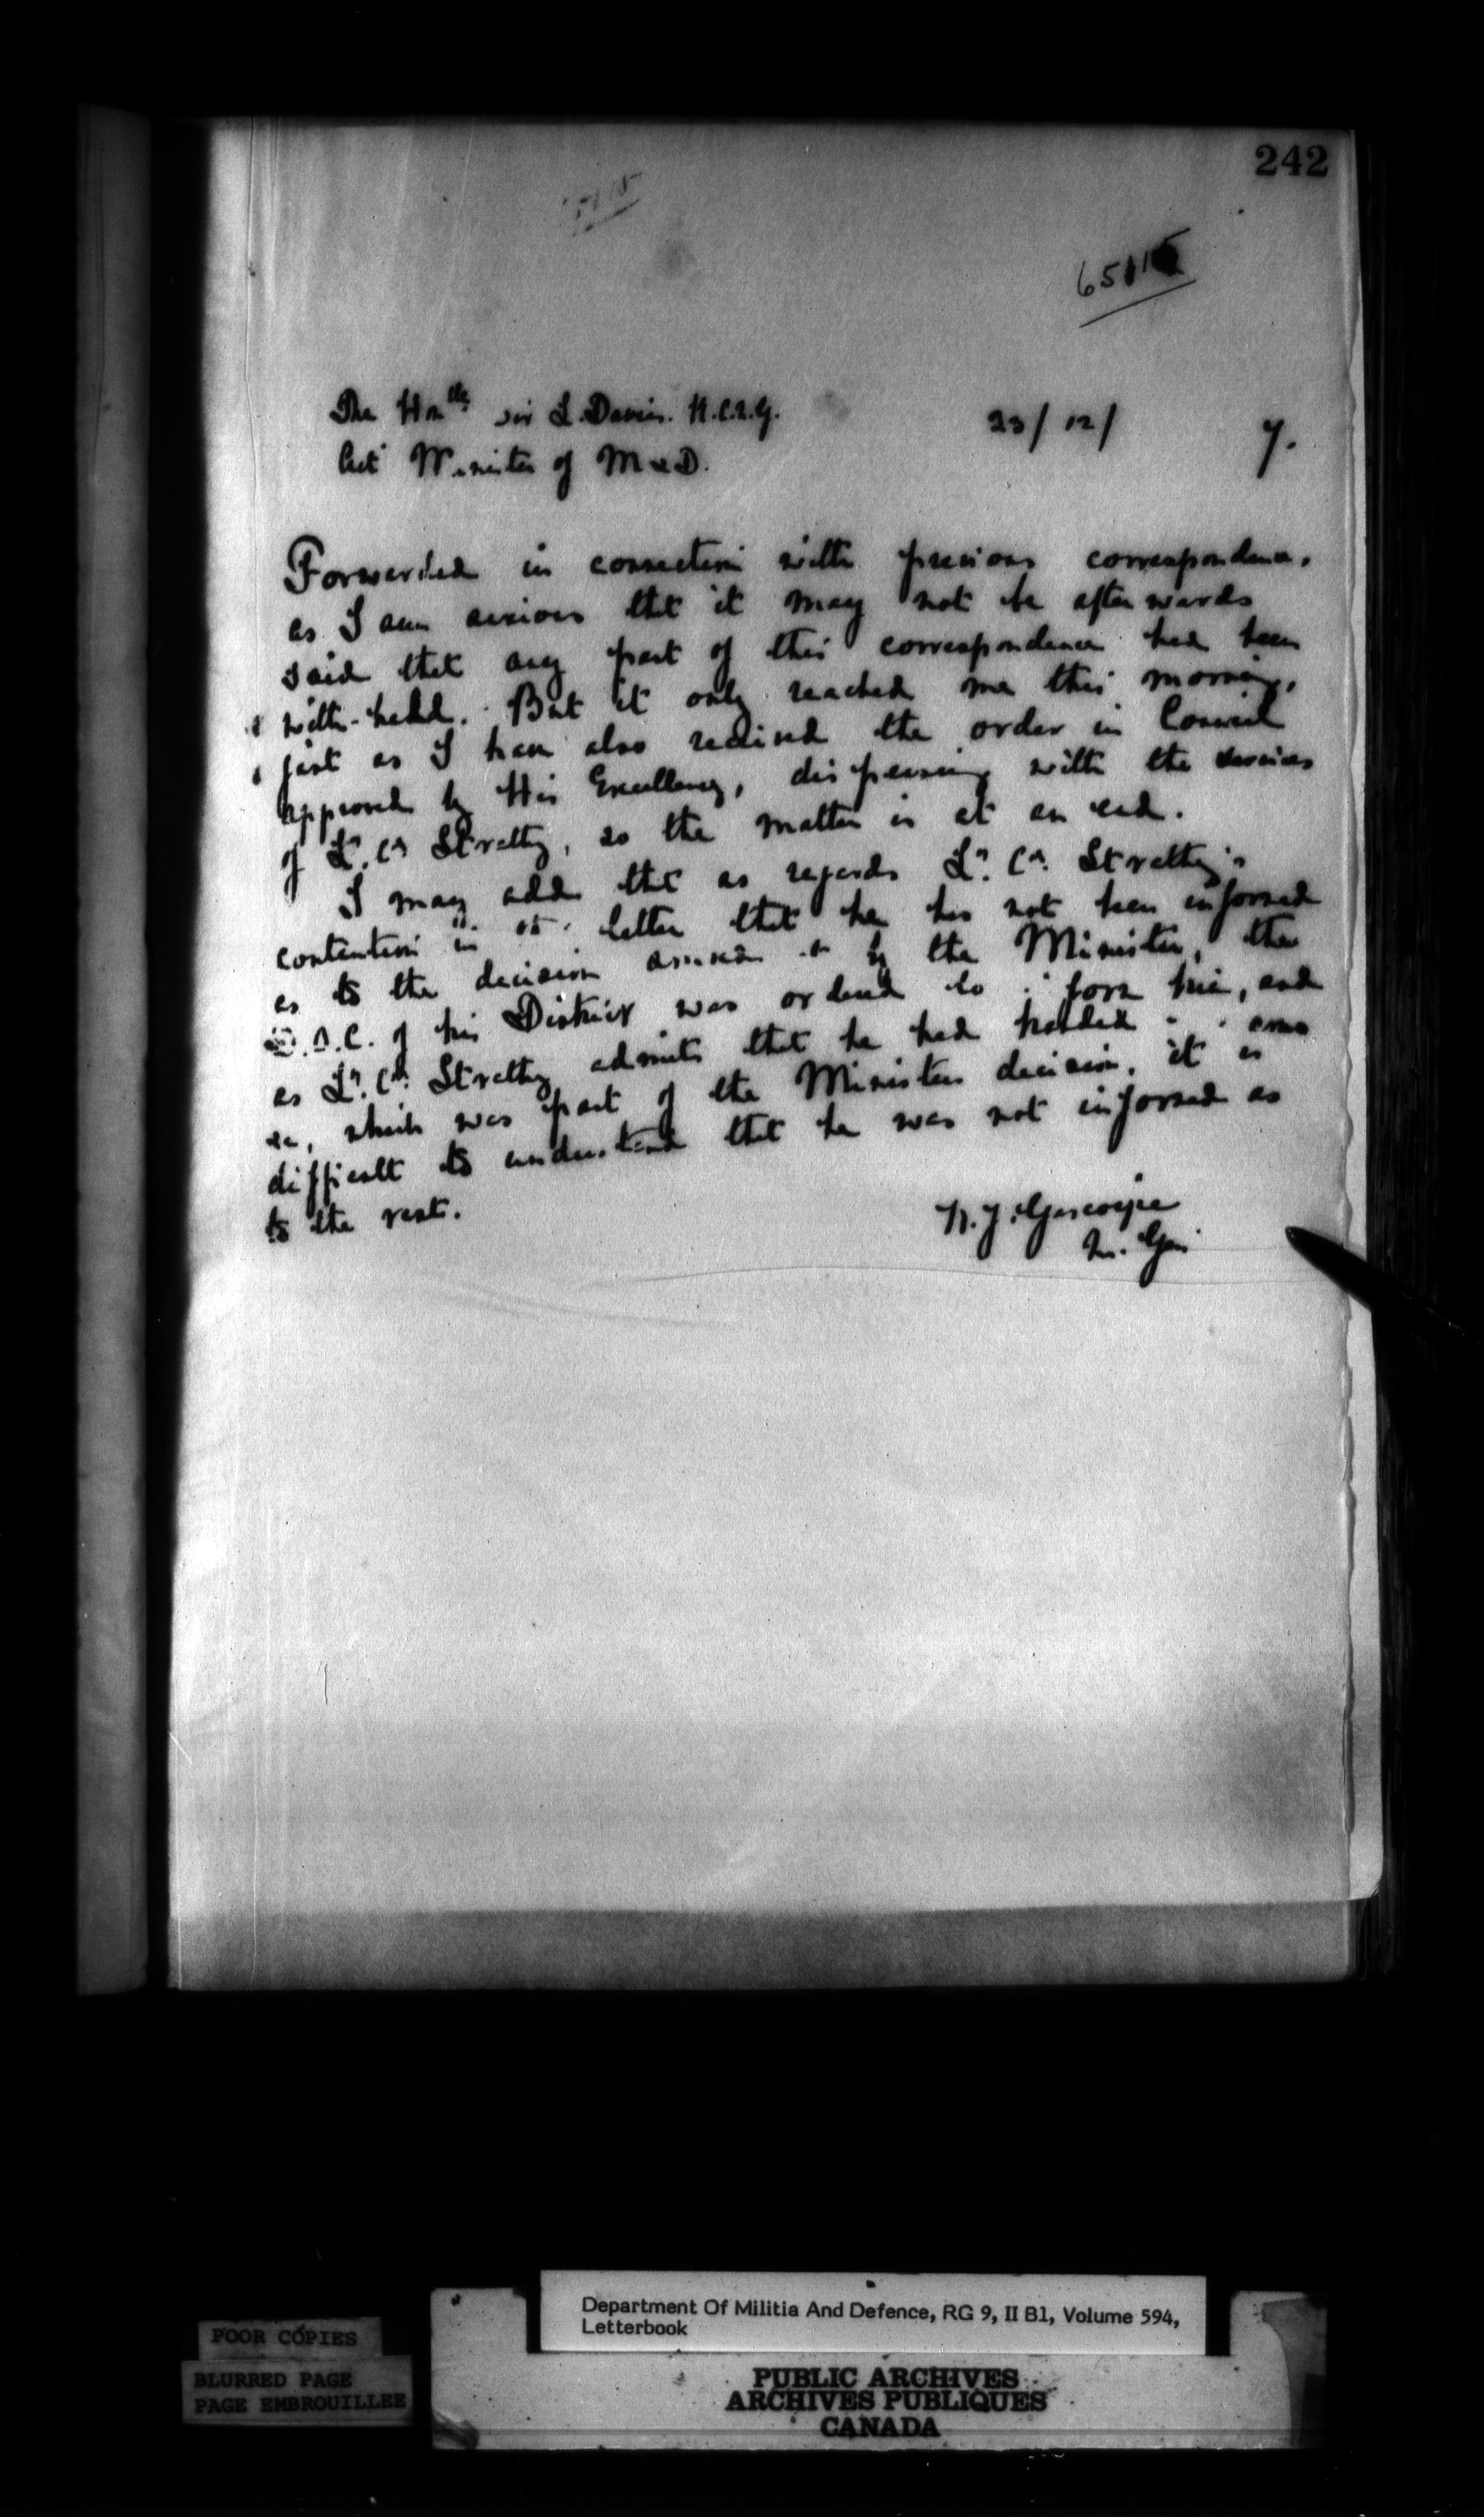 242
65115
The Hon'ble Sir L. Davies. K.C.M.G. 23/12/ 7.
Act Minister of M & D.
Forwarded in connection with previous correspondence,
as I am anxious that it may not be afterwards
said that any part of this correspondence had been
with-held. But it only reached me this morning,
just as I have also received the order in Council
approved by His Excellency, dispensing with the services
of Lt. Col Strathy, so the matter is at an end.
I may add that as regards Lt. Col. Strathy's
contention in letter that he has not been informed
as to the decision arrived by the Minister, the
D.O.C. of his District was ordered to inform him, and
as Lt. Col. Strathy admits that he had handed over
&c, which was part of the Ministers decision, it is
difficult to understand that he was not informed as
to the rest.
W. J. Gascoigne
M. Gen
POOR COPIES
BLURRED PAGE
PAGE EMBROUILLEE
Department Of Militia And Defence, RG 9, II B1, Volume 594,
Letterbook
PUBLIC ARCHIVES
ARCHIVES PUBLIQUES
CANADA